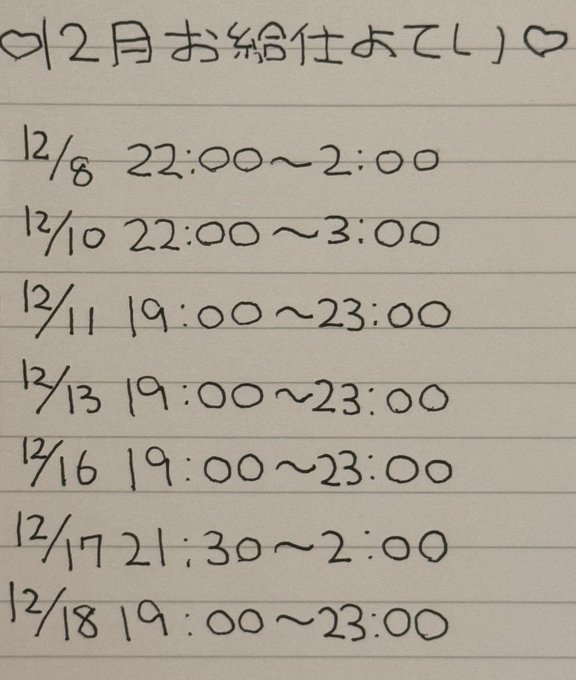 ♡12月お給仕よてい♡
12/8 22:00〜2:00
12/10 22:00〜3:00
12/11 19:00〜23:00
12/13 19:00〜23:00
12/16 19:00〜23:00
12/17 21:30〜2:00
12/18 19:00〜23:00